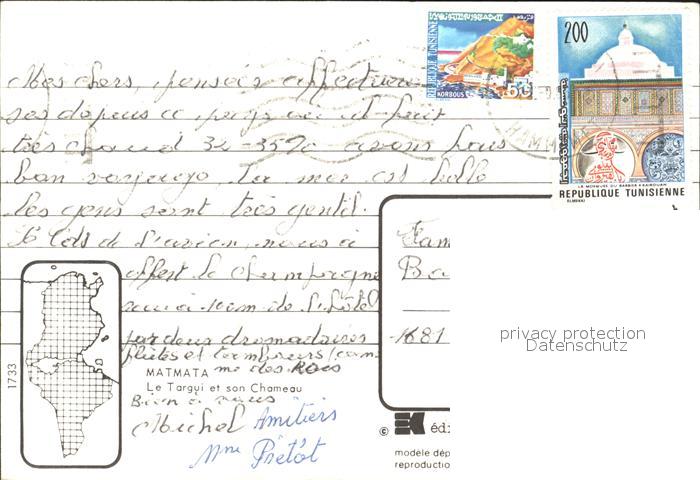 Mes chers, pensées affectueu
ses depuis ce pays où il fait
très chaud 32-35° avons fais
bon voyage, la mer est belle
les gens sont très gentil.
de l'avion, nous a
offert le Champagne
de l'hôtel
par deux dromadaires
flutes et tambours
me des Rois
Bien à vous
Michel Amitiers
Mme Prétot
MATMATA
Le Targui et son Chameau
1733
REPUBLIQUE TUNISIENNE
KORBOUS
50
200
LA MOSQUEE DU BARBIER KAIROUAN
REPUBLIQUE TUNISIENNE
HAMM
Fam
Ba
1681
privacy protection
Datenschutz
© EK édi
modele dép
reproductio